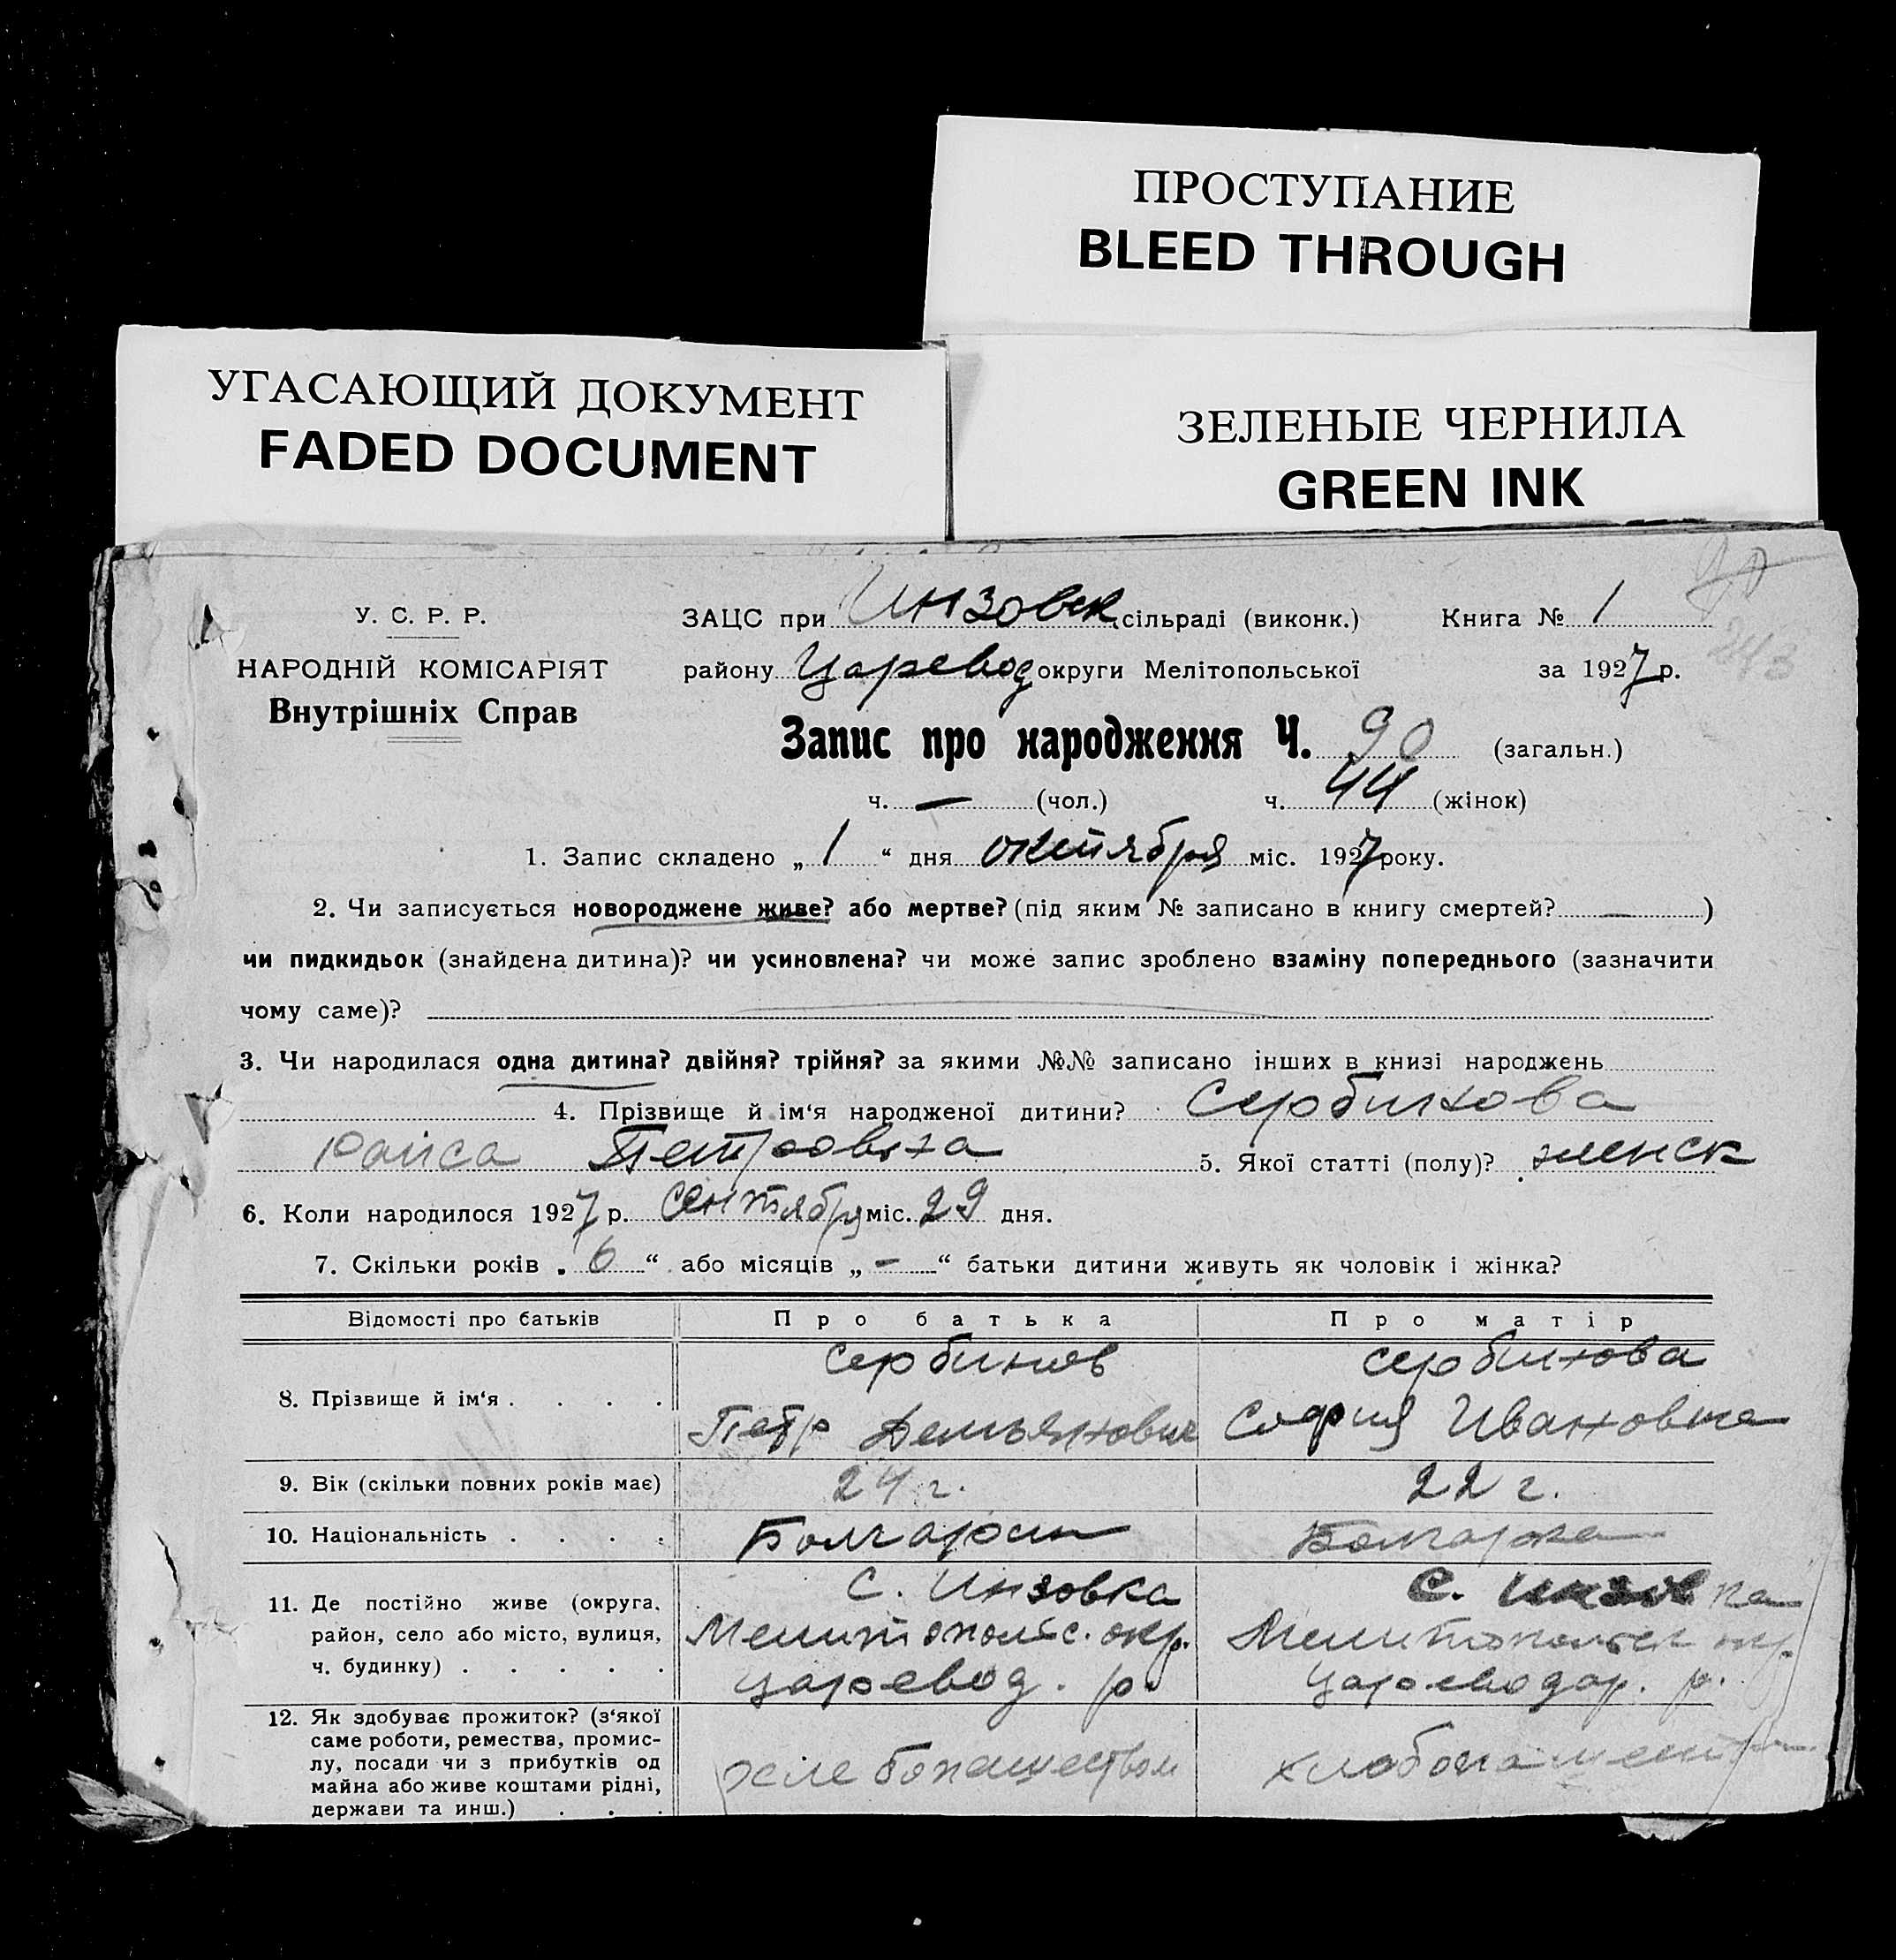 ПРОСТУПАНИЕ
BLEED THROUGH
УГАСАЮЩИЙ ДОКУМЕНТ
FADED DOCUMENT
ЗЕЛЕНЫЕ ЧЕРНИЛА
GREEN INK
У. С. Р. Р.
НАРОДНІЙ КОМІСАРІЯТ
Внутрішніх Справ
ЗАЦС при Инзовск сільраді (виконк.) Книга № 1
району Царевод округи Мелітопольської за 1927 р.
243
Запис про народження Ч. 90 (загальн.)
ч. — (чол.) ч. 44 (жінок)
1. Запис складено „ 1 “ дня октября міс. 1927 року.
2. Чи записується новороджене живе? або мертве? (під яким № записано в книгу смертей? — )
чи пидкидьок (знайдена дитина)? чи усиновлена? чи може запис зроблено взаміну попереднього (зазначити
чому саме)?
3. Чи народилася одна дитина? двійня? трійня? за якими №№ записано інших в книзі народжень
4. Прізвище й ім‘я народженої дитини? Сербинова
Раиса Петровна 5. Якої статті (полу)? женск
6. Коли народилося 1927 р. Сентября міс. 29 дня.
7. Скільки років „ 6 “ або місяців „ - “ батьки дитини живуть як чоловік і жінка?
Відомості про батьків Про батька Про матір
8. Прізвище й ім‘я . . . . Сербинов Петр Демьянович Сербинова София Ивановна
9. Вік (скільки повних років має) 24 г. 22 г.
10. Національність . . . . Болгарин Болгарка
11. Де постійно живе (округа, район, село або місто, вулиця, ч. будинку) . . . . . С. Инзовка Мелитопольс. окр. Царевод. р. С. Инзовка Мелитопольск окр. Цареводар. р.
12. Як здобуває прожиток? (з‘якої саме роботи, ремества, промислу, посади чи з прибутків од майна або живе коштами рідні, держави та инш.) . . .